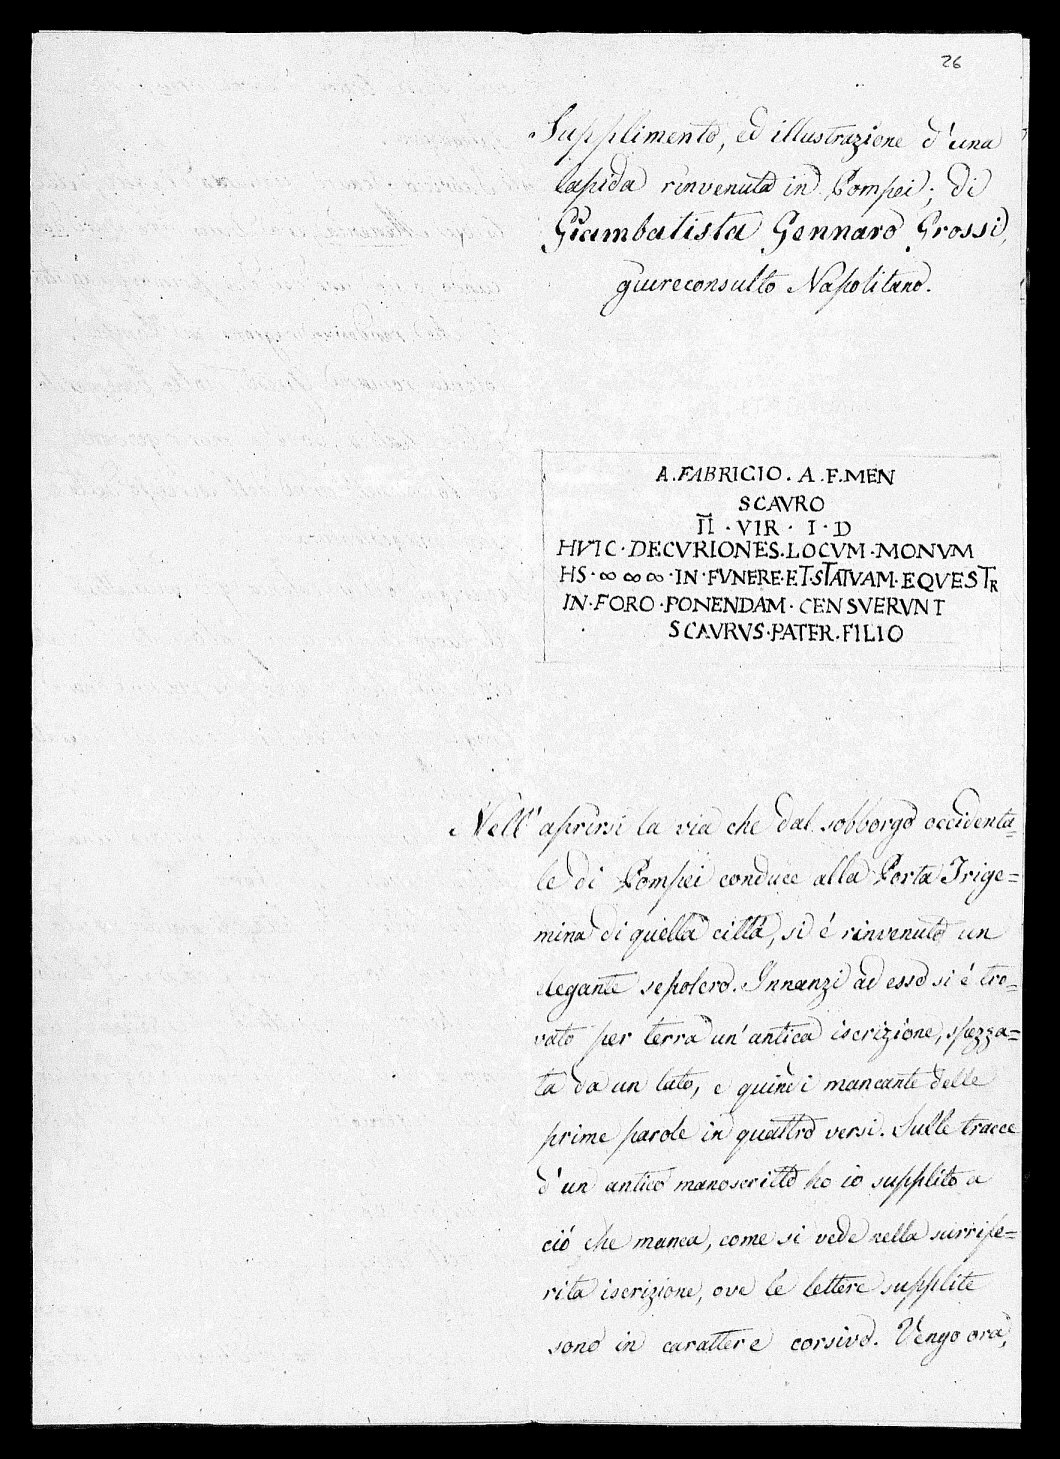 26
Supplimento, ed illustrazione d'una
lapida rinvenuta in Pompei; di
Giambatista Gennaro Grossi,
giureconsulto Napolitano.
A.FABRICIO.A.F.MEN
SCAVRO
II·VIR·I·D
HVIC·DECVRIONES.LOCVM·MONVM
HS·∞∞∞·IN·FVNERE·ET·STATVAM·EQVESTR
IN·FORO·PONENDAM·CENSVERVNT
SCAVRVS·PATER·FILIO
Nell' aprirsi la via che dal sobborgo occidenta=
le di Pompei conduce alla Porta Trige=
mina di quella città, si é rinvenuto un
elegante sepolcro. Innanzi ad esso si é tro=
vato per terra un' antica iscrizione, spezza=
ta da un lato, e quindi mancante delle
prime parole in quattro versi. Sulle tracce
d'un antico manoscritto ho io supplito a
ció che manca, come si vede nella surrife=
rita iscrizione, ove le lettere supplite
sono in carattere corsivo. Vengo ora,